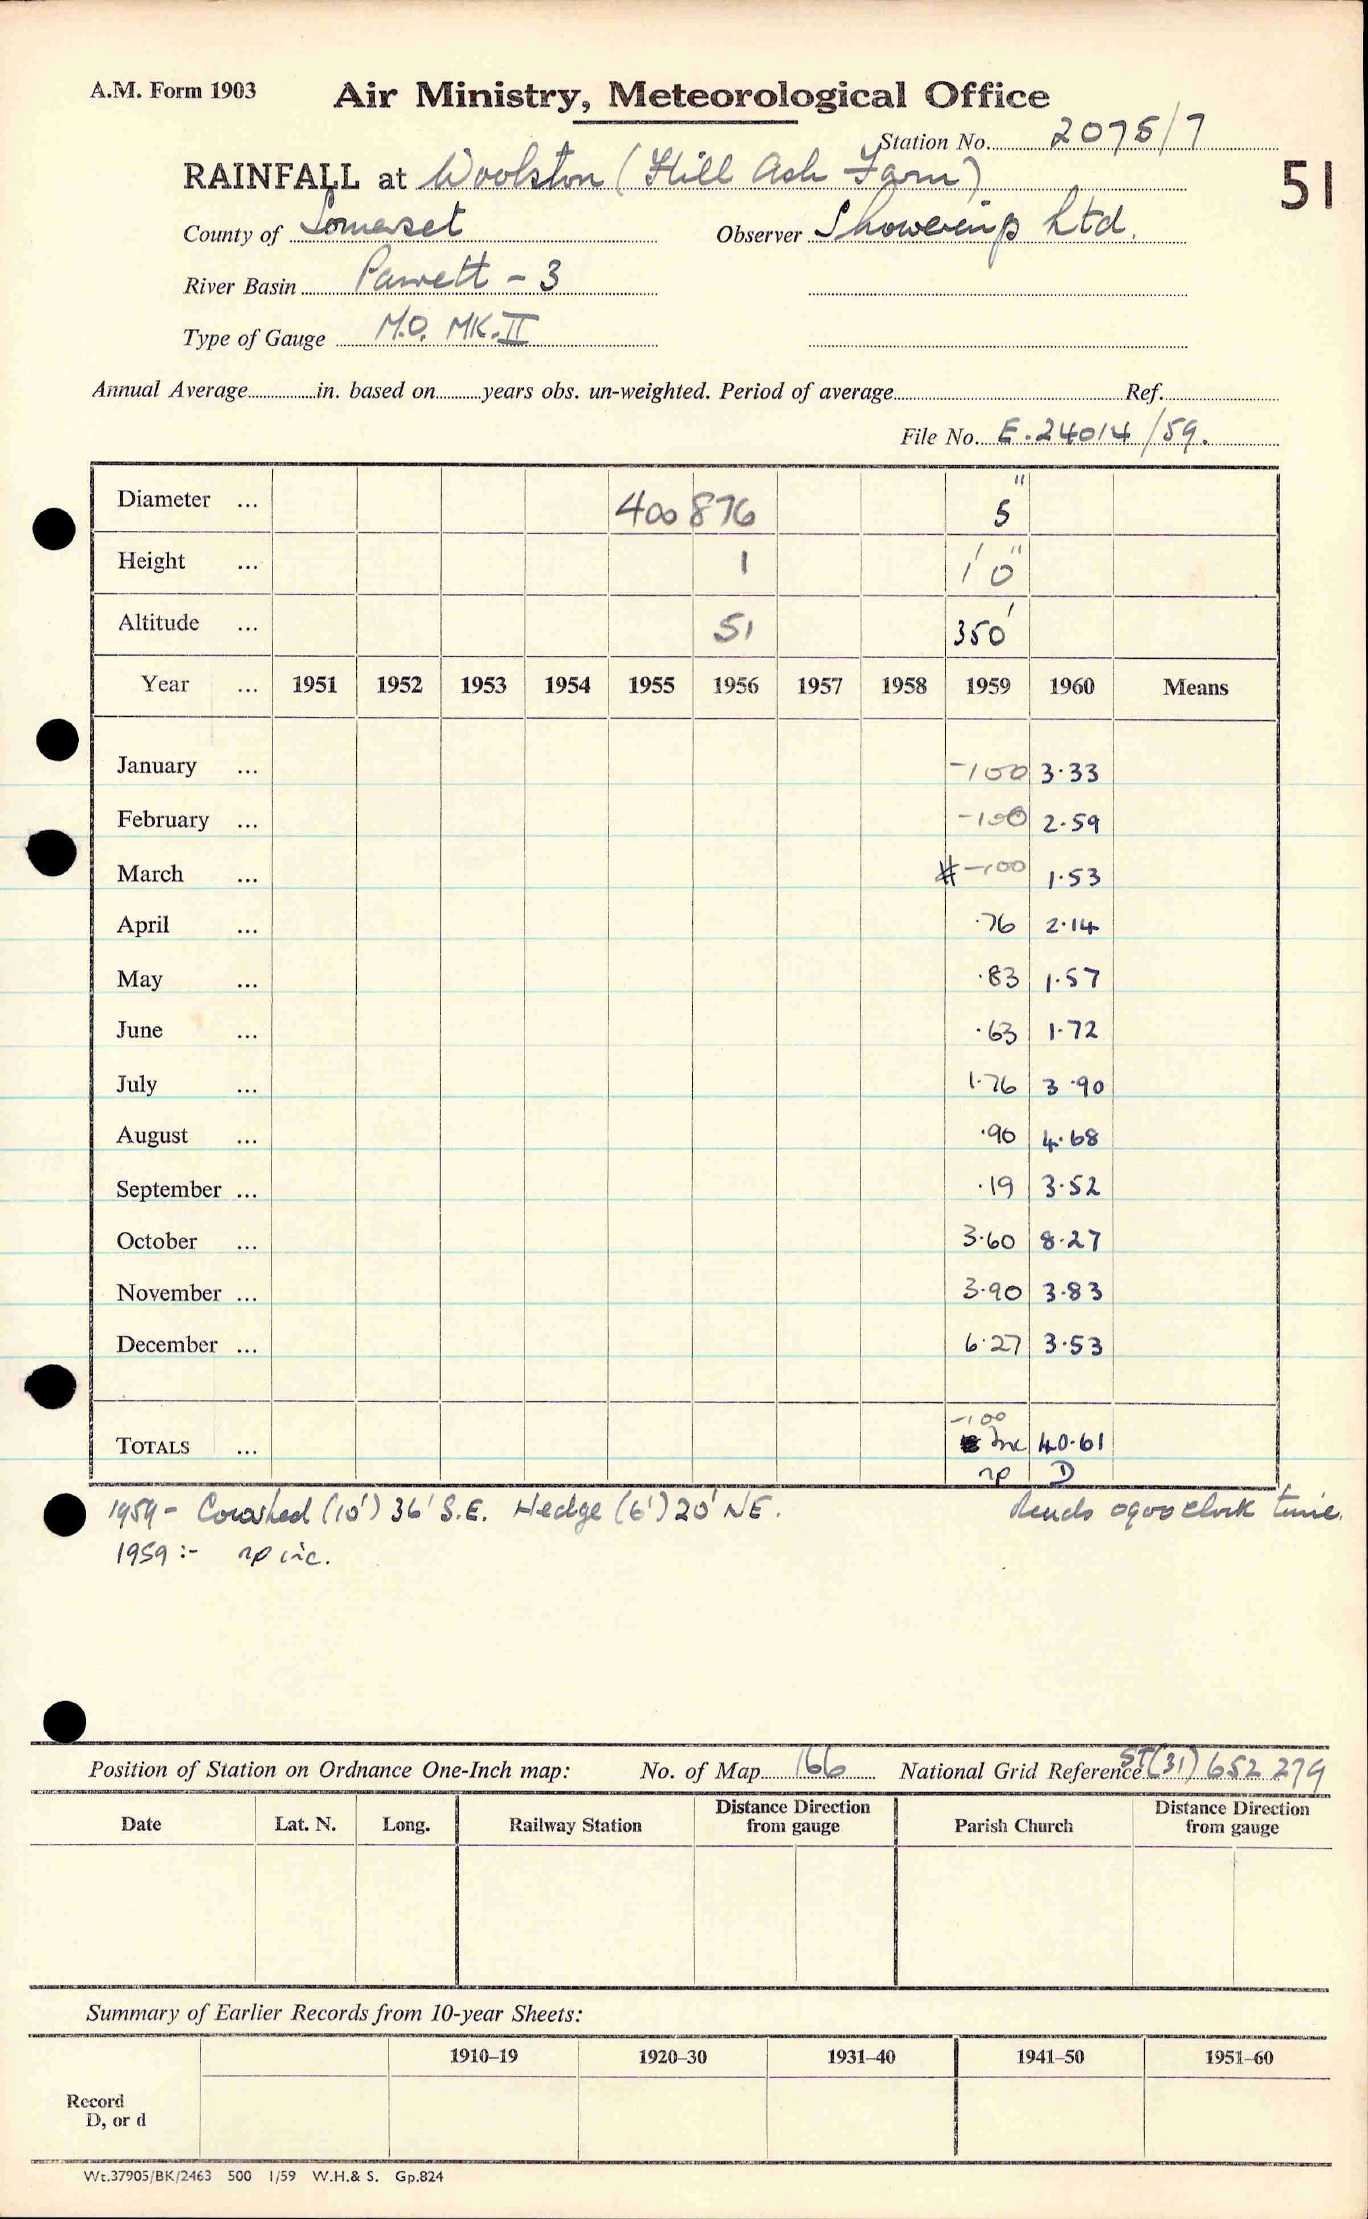 A.M. Form 1903 Air Ministry, Meteorological Office
Station No. 2075/7
RAINFALL at Woolston (Hill Ash Farm) 51
County of Somerset Observer Showerings Ltd.
River Basin Parrett - 3
Type of Gauge M.O. MK.II
Annual Average in. based on years obs. un-weighted. Period of average Ref.
File No. E.24014/59.
Diameter ... 400876 5"
Height ... 1 1' 0"
Altitude ... 51 350'
Year ... 1951 1952 1953 1954 1955 1956 1957 1958 1959 1960 Means
January ... -100 3.33
February ... -100 2.59
March ... # -100 1.53
April ... .76 2.14
May ... .83 1.57
June ... .63 1.72
July ... 1.76 3.90
August ... .90 4.68
September ... .19 3.52
October ... 3.60 8.27
November ... 3.90 3.83
December ... 6.27 3.53
-100
TOTALS ... Inc 40.61
np D
1959 - Cowshed (10') 36' S.E. Hedge (6') 20' NE. Reads 0900 clock time.
1959 :- np inc.
Position of Station on Ordnance One-Inch map: No. of Map 166 National Grid Reference ST(31) 652 279
Date Lat. N. Long. Railway Station Distance Direction from gauge Parish Church Distance Direction from gauge
Summary of Earlier Records from 10-year Sheets:
1910–19 1920–30 1931–40 1941–50 1951–60
Record
D, or d
Wt.37905/BK/2463 500 1/59 W.H.& S. Gp.824